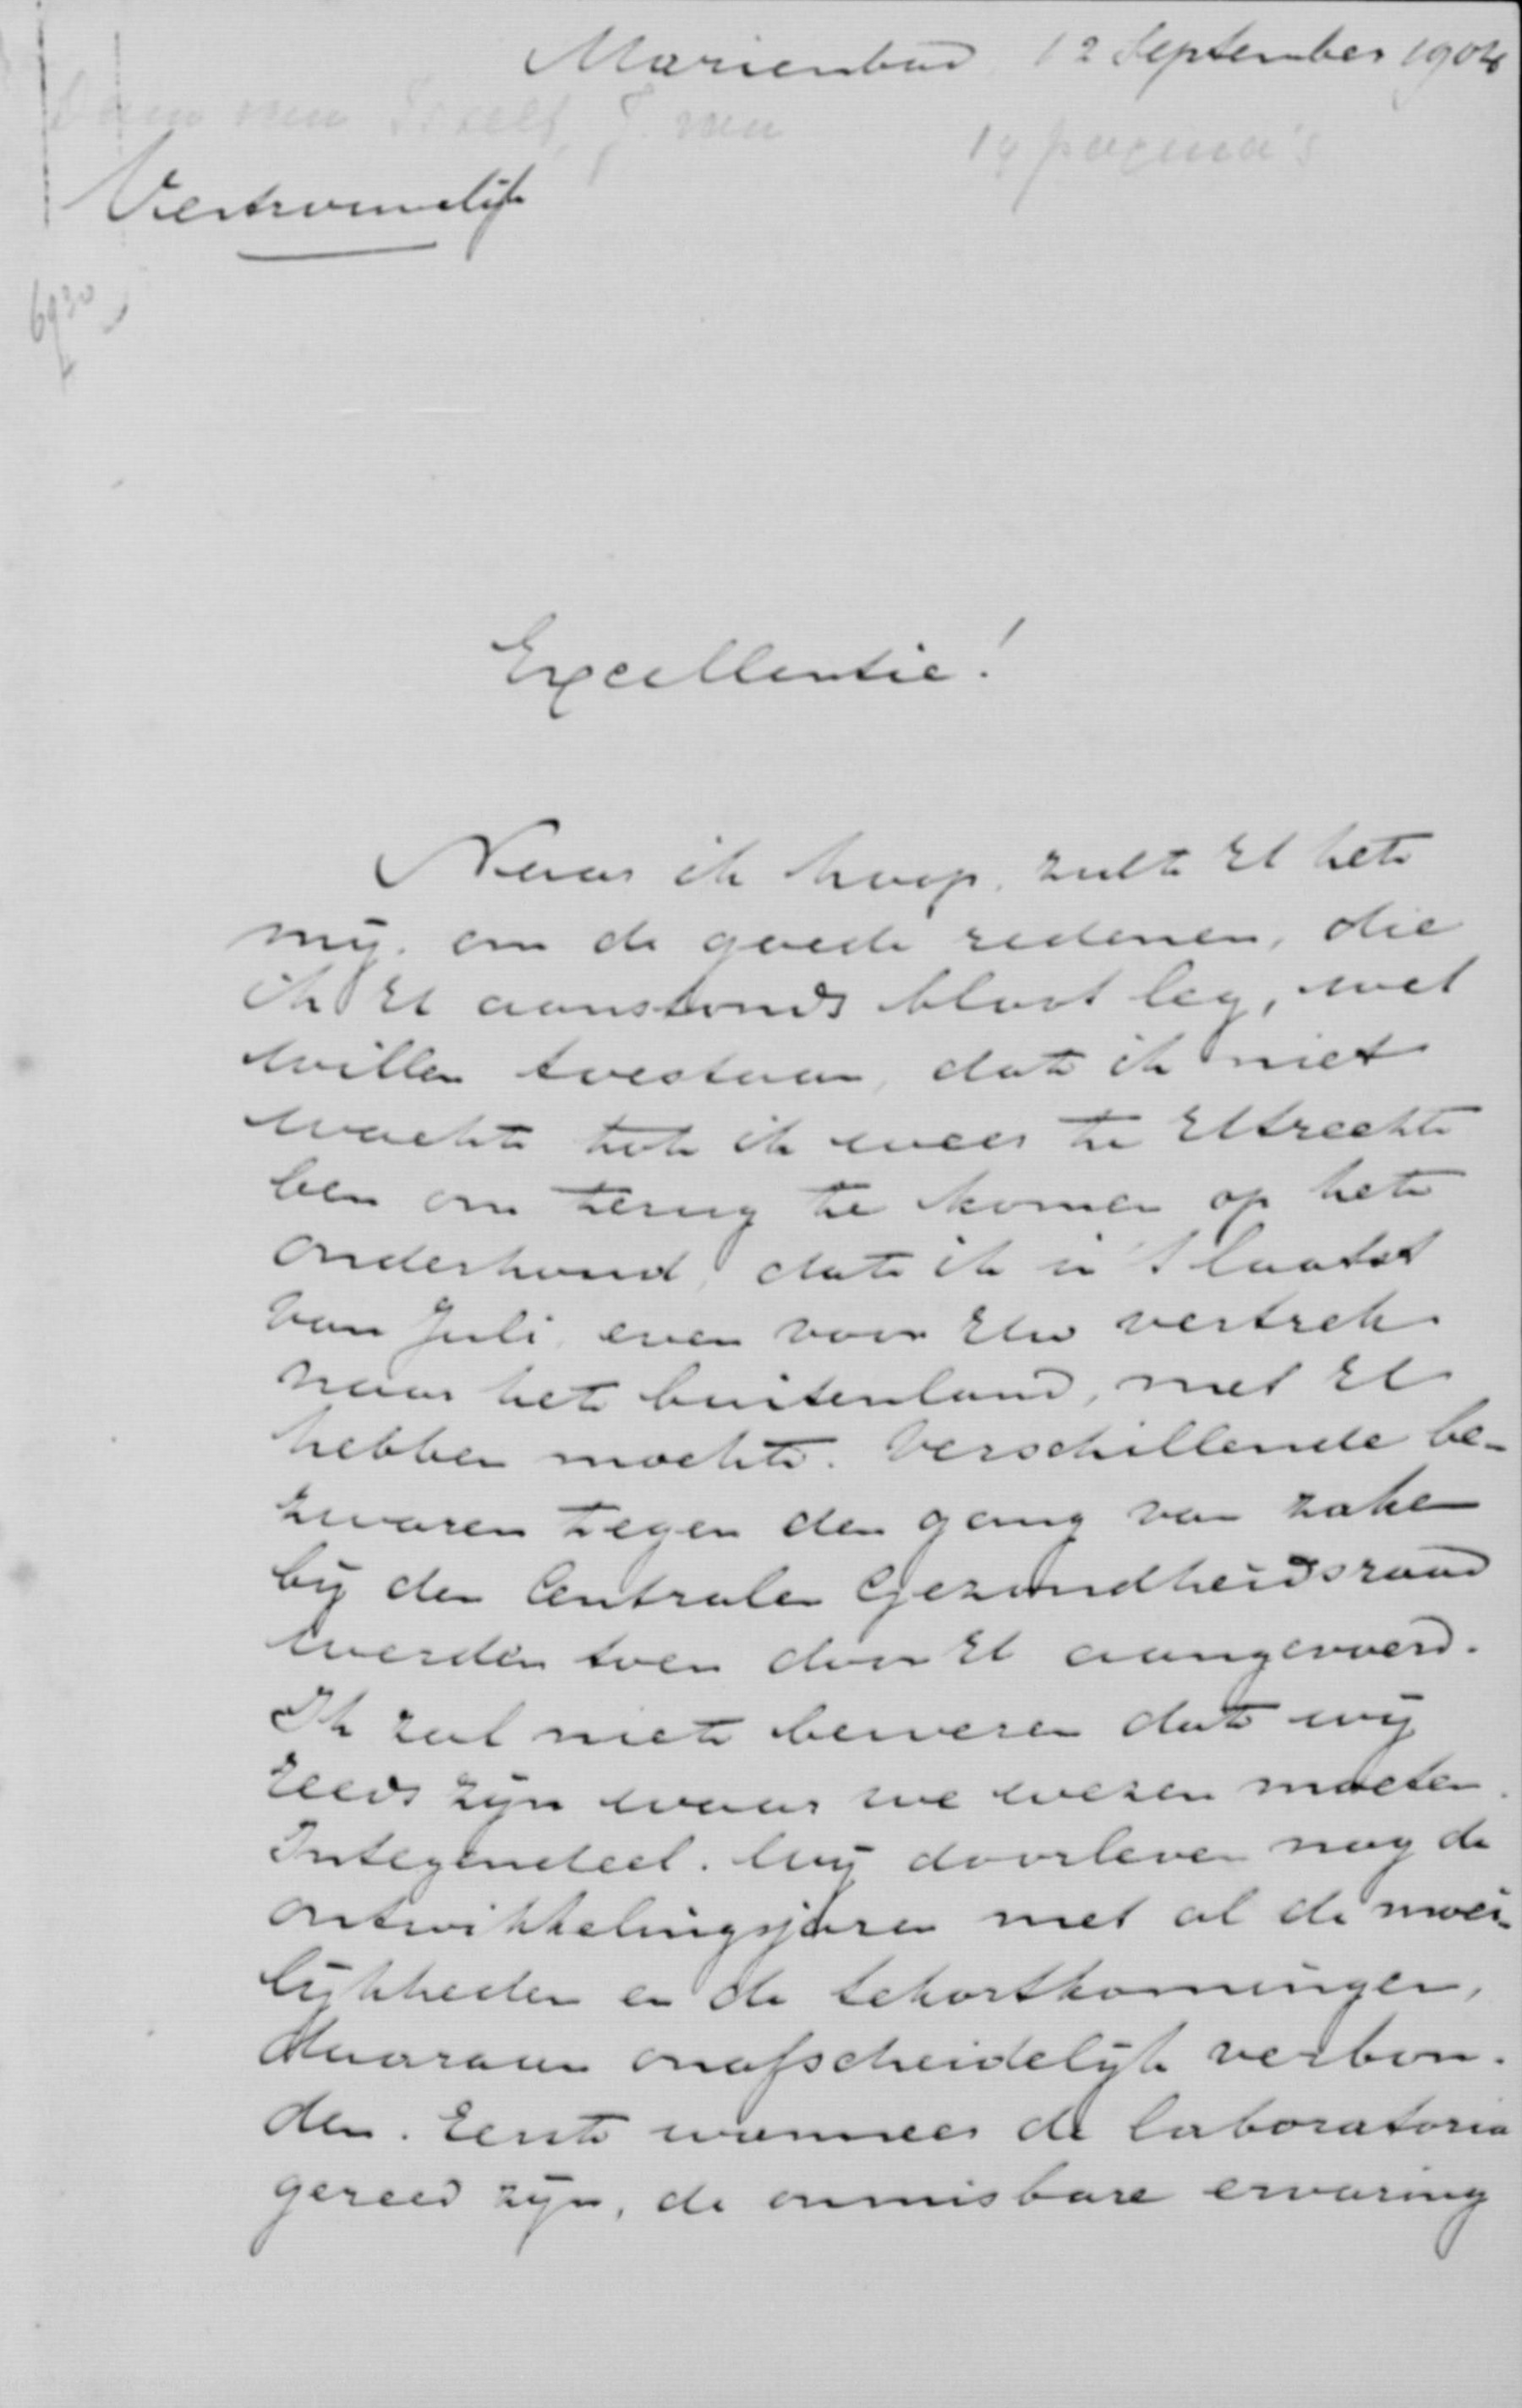 Marienbad 12 September 1904
Dam van Isselt, J. van
19 pagina's
Vertrouwelijk
Excellentie!
Naar ik hoop, zult U het
mij, om de goede redenen, die
ik U aanstonds bloot leg, wel
willen toestaan, dat ik niet
wacht tot ik weer te Utrecht
ben om terug te komen op het
onderhoud, dat ik in 't laatst
van Juli, even voor Uw vertrek
naar het buitenland, met U
hebben mocht. Verschillende be-
zwaren tegen den gang van zaken
bij den Centralen Gezondheidsraad
werden toen door U aangevoerd.
Ik zal niet beweren dat wij
reeds zijn waar we wezen moeten.
Integendeel. Wij doorleven nog de
ontwikkelingsjaren met al de moei-
lijkheden en de tekortkomingen,
daaraan onafscheidelijk verbon-
den. Eerst wanneer de laboratoria
gereed zijn, de onmisbare ervaring